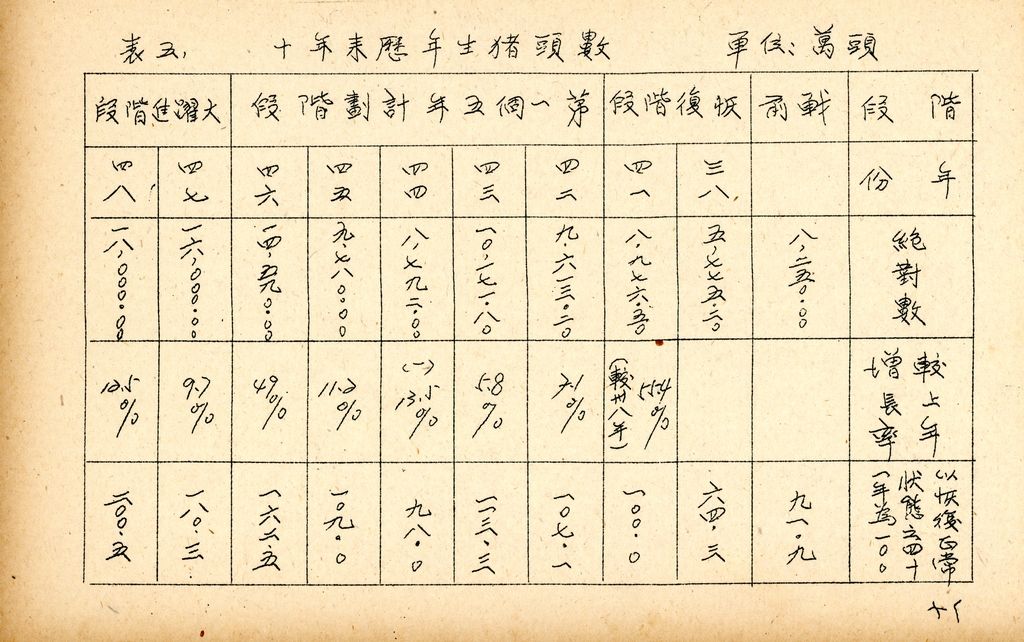 表五, 十年来歷年生猪頭數 單位:萬頭
階段 戰前 恢復階段 第一個五年計劃階段 大躍進階段
年份 三八 四一 四二 四三 四四 四五 四六 四七 四八
絕對數 八,二五〇.〇〇 五,七七五.二〇 八,九七六.五〇 九,六一三.二〇 一〇,一七一.八〇 八,七九二.〇〇 九,七八〇.〇〇 一四,五九〇.〇〇 一六,〇〇〇.〇〇 一八,〇〇〇.〇〇
較上年增長率 55.4% (較卅八年) 7.1% 5.8% (一)13.5% 11.2% 49% 9.7% 12.5%
以恢復正常狀態之四十一年為一〇〇 九一.九 六四.三 一〇〇.〇 一〇七.一 一一三.三 九八.〇 一〇九.〇 一六二.五 一八〇.三 二〇〇.五